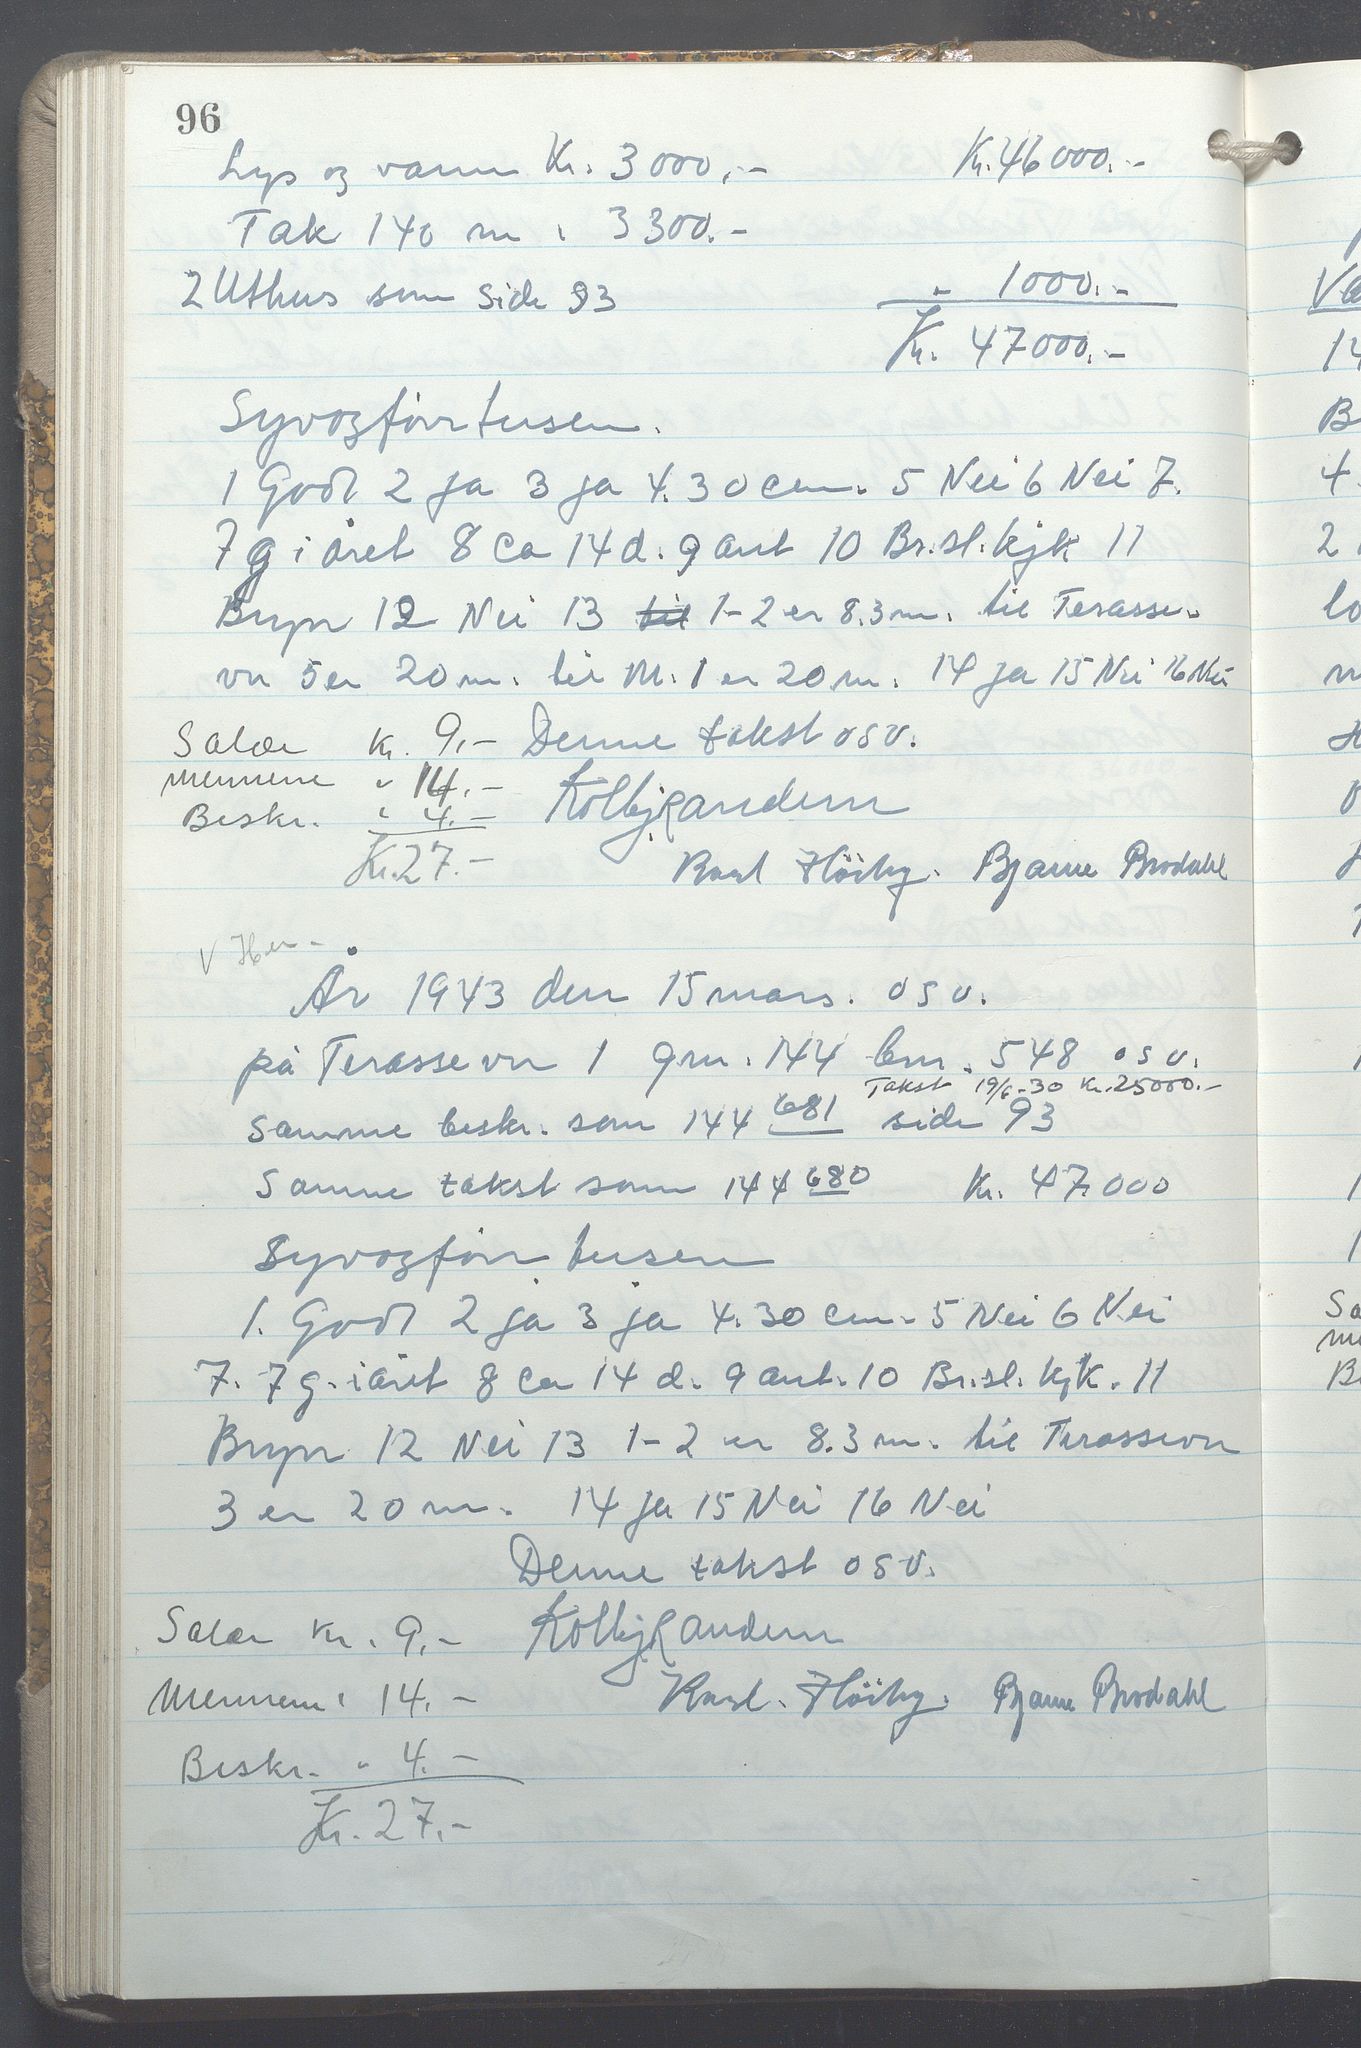 96
Lys og vann Kr. 3000,- Kr. 46000.-
Tak 140 m " 3300.-
2 Uthus som side 93 " 1000.-
Kr. 47000.-
Syvogførrtusen.
1 Godt 2 ja 3 ja 4. 30 cm. 5 Nei 6 Nei 7.
7 g i året 8 ca 14 d. 9 ant 10 Br.sl.kjk 11
Bryn 12 Nei 13 1-2 er 8.3 m. til Terasse-
vn 5 er 20 m. til M. 1 er 20 m. 14 ja 15 Nei 16 Nei
Salær Kr. 9.- Denne takst osv.
Mennene " 14.- Kolbj Randem
Beskr. " 4.-
Kr. 27.- Karl Höiby. Bjarne Brodahl
V
År 1943 den 15 mars. osv.
på Terassevn 1 gnr. 144 bnr. 548 osv.
Takst 19/6-30 Kr. 25000.-
Samme beskr. som 144 681 side 93
Samme takst som 144 680 Kr. 47.000
Syvogførrtusen
1. Godt 2 ja 3 ja 4. 30 cm. 5 Nei 6 Nei
7. 7 g. i året 8 ca 14 d. 9 ant. 10 Br.sl. kjk. 11
Bryn 12 Nei 13 1-2 er 8.3 m. til Terassevn
3 er 20 m. 14 ja 15 Nei 16 Nei
Denne takst osv.
Salær Kr. 9.- Kolbj Randem
Mennene " 14.- Karl. Höiby. Bjarne Brodahl
Beskr. " 4.-
Kr. 27.-